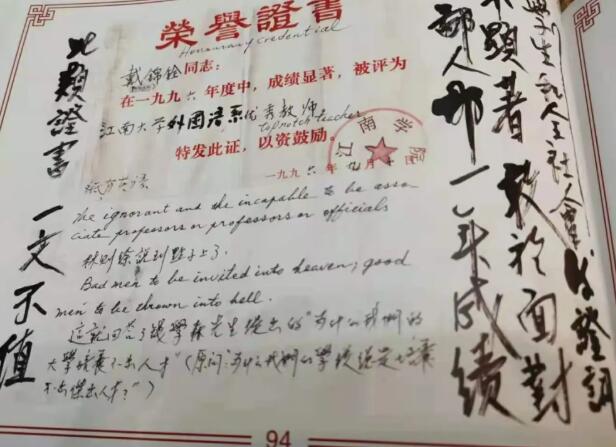 榮譽證書
Honourary credential
戴錦銓同志：
在一九九六年度中，成绩显著，被评为
江南大学外國語系优秀教师
top notch teacher
特发此证，以资鼓励。
江南学院
一九九六年九月
The ignorant and the incapable to be asso
ciate professors or professors or officials
林则徐说到點子上了.
Bad men to be invited into heaven; good
men to be thrown into hell.
這就回答了钱學森先生提出的"为什么我們的
大學培养不出人才"(原问:为什么我們的學校总是培养
不出傑出人才?")
此類證書一文不值
顯著敢於面對
鄙人那一年成績
94